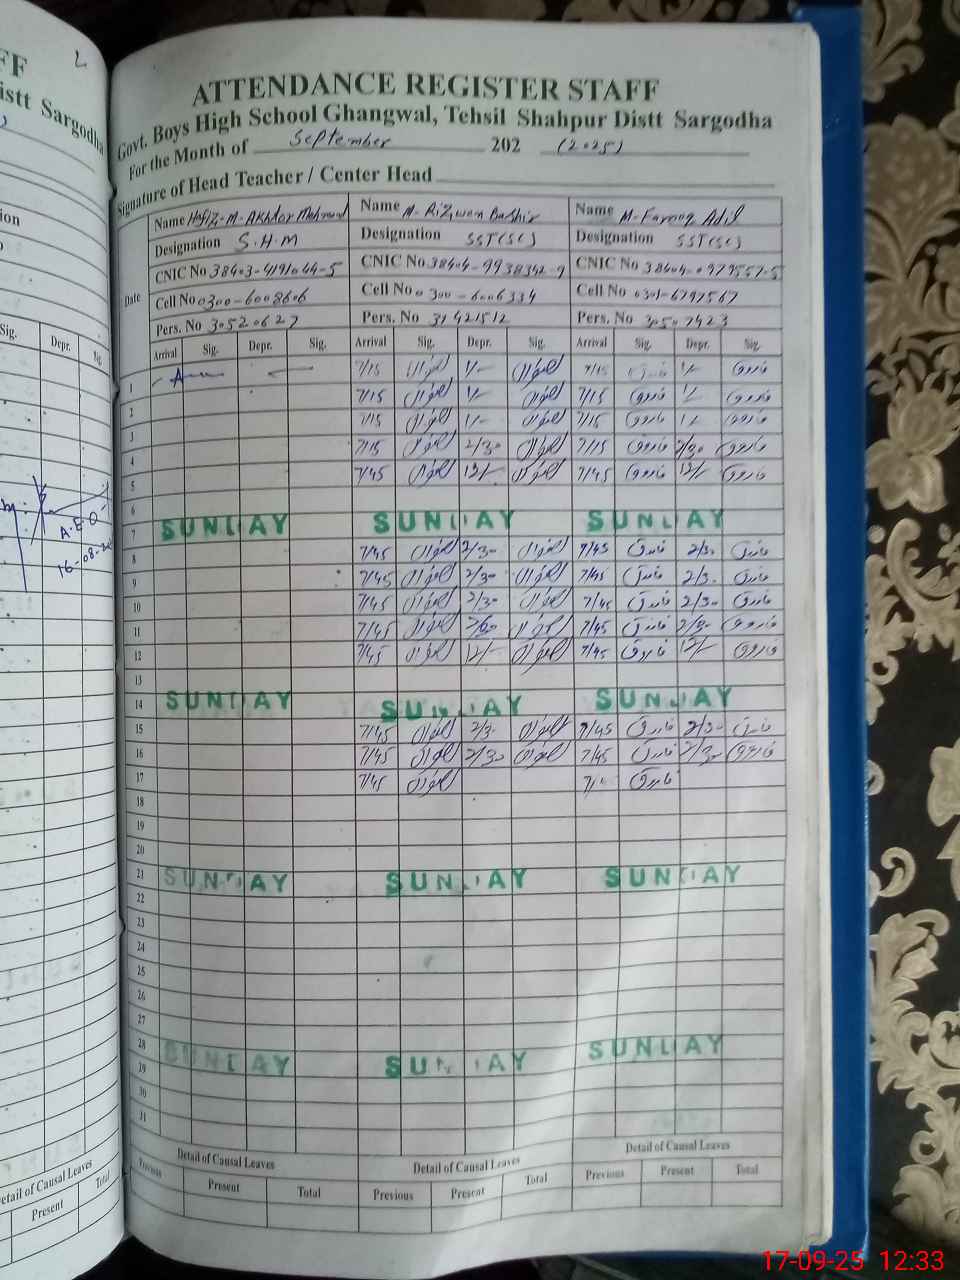 FF
Distt Sargodha
ion
Sig.
Depr.
A.E.O
Detail of Causal Leaves
Present
Total
ATTENDANCE REGISTER STAFF
Govt. Boys High School Ghangwal, Tehsil Shahpur Distt Sargodha
For the Month of September 202 (2025)
Signature of Head Teacher / Center Head
Date
Name Hafiz-M-Akhtar Mehmood Name M-Rizwan Bashir Name M-Farooq Adil
Designation S.H.M Designation SST(SC) Designation SST(SC)
CNIC No 38403-4191044-5 CNIC No 38404-9938342-9 CNIC No 38404-0979557-5
Cell No 0300-6008606 Cell No 0300-6006334 Cell No 0301-6797567
Pers. No 30520627 Pers. No 31421512 Pers. No 30507423
Arrival Sig. Depr. Sig. Arrival Sig. Depr. Sig. Arrival Sig. Depr. Sig.
1 7/15 1/- 7/15 1/- فاروق
2 7/15 1/- 7/15 فاروق 1/- فاروق
3 7/15 1/- 7/15 فاروق 1/- فاروق
4 7/15 2/30 7/15 فاروق 2/30 فاروق
5 7/45 12/- 7/45 فاروق 12/- فاروق
6
7 SUNDAY SUNDAY SUNDAY
8 7/45 2/30 7/45 فاروق 2/30 فاروق
9 7/45 2/30 7/45 فاروق 2/30 فاروق
10 7/45 2/30 7/45 فاروق 2/30 فاروق
11 7/45 2/30 7/45 فاروق 2/30 فاروق
12 7/45 12/- 7/45 فاروق 12/- فاروق
13
14 SUNDAY SUNDAY SUNDAY
15 7/45 2/30 7/45 فاروق 2/30 فاروق
16 7/45 2/30 7/45 فاروق 2/30 فاروق
17 7/45 فاروق
18
19
20
21 SUNDAY SUNDAY SUNDAY
22
23
24
25
26
27
28 SUNDAY SUNDAY SUNDAY
29
30
31
Detail of Causal Leaves Detail of Causal Leaves Detail of Causal Leaves
Previous Present Total Previous Present Total Previous Present Total
17-09-25 12:33